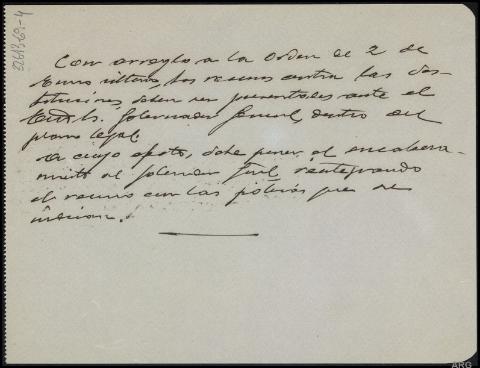 Con arreglo a la Orden de 2 de
Enero último, los recursos contra las des-
tituciones, deben ser presentados ante el
Gobernador General dentro del
plazo legal.
A cuyo efecto, debe poner el encabeza-
miento al Gobernador Gral, reintegrando
el recurso con las pólizas que se
32613-69-4
ARG